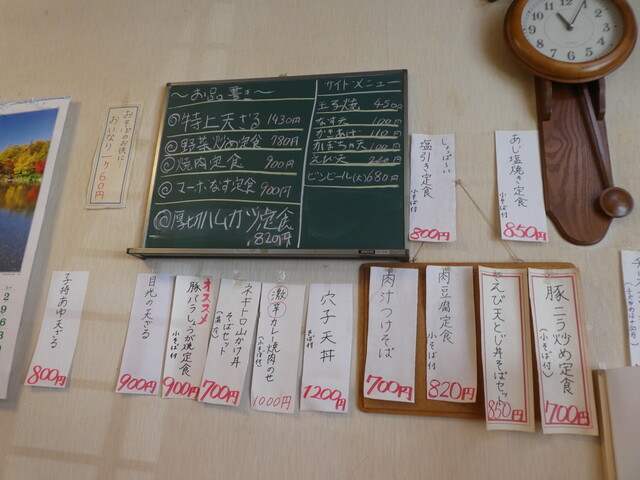 〜お品書き〜
◎特上天ざる 1430円
◎野菜炒め定食 780円
◎焼肉定食 900円
◎マーボなす定食 900円
◎厚切ハムカツ定食 820円
サイドメニュー
玉子焼 450円
なす天 100円
かきあげ 110円
かぼちゃ天 100円
えび天
ビンビール(大) 680円
おそばのお供に!
おいなり 1ケ 60円
しょっぱ〜い
塩引き定食
小そば付
800円
あじ塩焼き定食
小そば付
850円
子持あゆ天ざる
800円
目光の天ざる
900円
オススメ
豚バラしょうが焼定食
小そば付
900円
ネギトロ山かけ丼
そばセット
700円
激辛
カレー焼肉のせ
(小そば付)
1000円
穴子天丼
そば付
1200円
肉汁つけそば
700円
肉豆腐定食
小そば付
820円
えび天とじ丼そばセット
850円
豚ニラ炒め定食
(小そば付)
700円